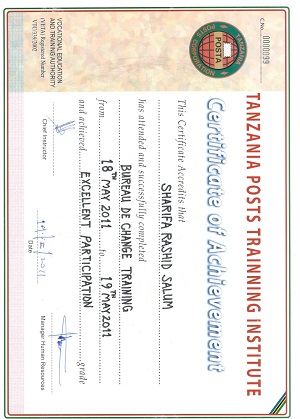 C.No. 0000099
TANZANIA
POSTA
TANZANIA POSTS TRAINNING INSTITUTE
Certificate of Achievement
This Certificate Accredits that
SHARIFA RASHID SALUM
has attended and successfully completed
BUREAU DE CHANGE TRAINING
from 18TH MAY 2011 to 19TH MAY 2011
and achieved EXCELLENT PARTICIPATION grade
VOCATIONAL EDUCATION
AND TRAINING AUTHORITY
(VETA) Registered Number
Chief Instructor
Date
Manager Human Resources